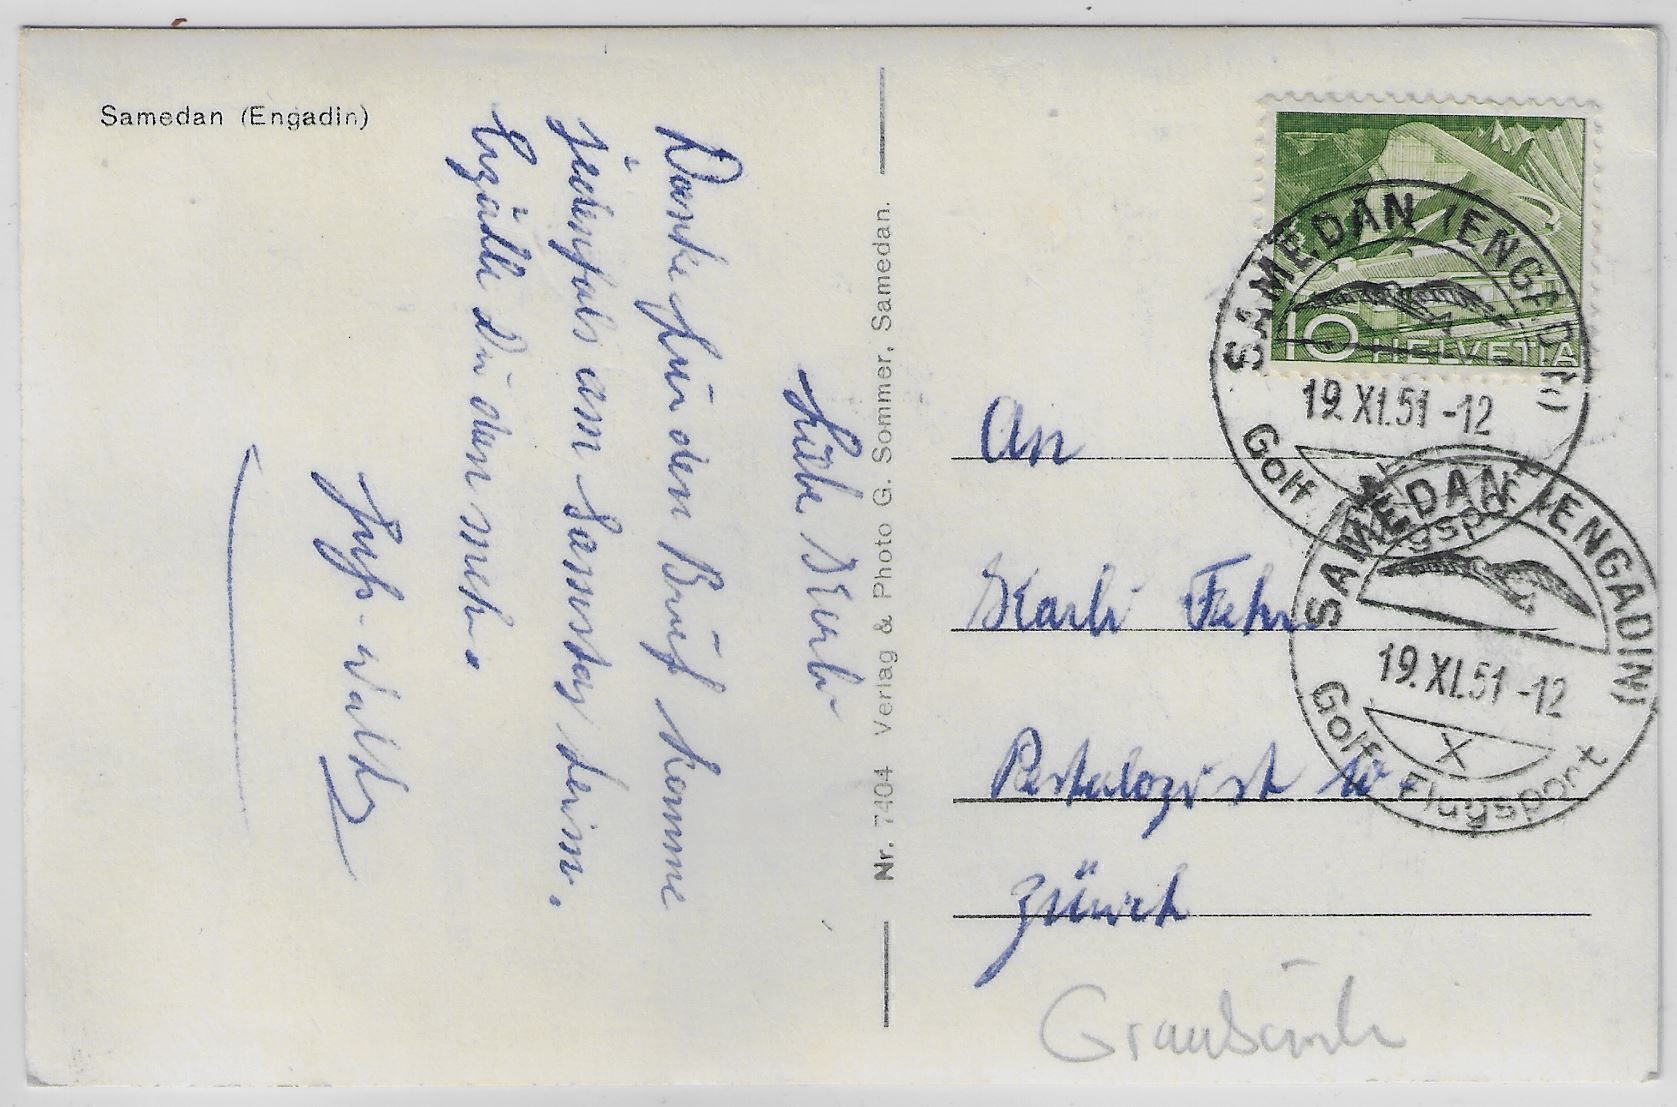 Samedan (Engadin)
Liebe Karli
Danke für den Brief komme
jedenfals am Samstag heim.
Erzälle Dir dan meh.
Walti
Nr. 7404 Verlag & Photo G. Sommer, Samedan.
10 HELVETIA
SAMEDAN (ENGADIN)
19.XI.51-12
Golf
SAMEDAN (ENGADIN)
19.XI.51-12
X
Golf Flugsport
An
Karli
Pestalozist
Zürich
Graubünden